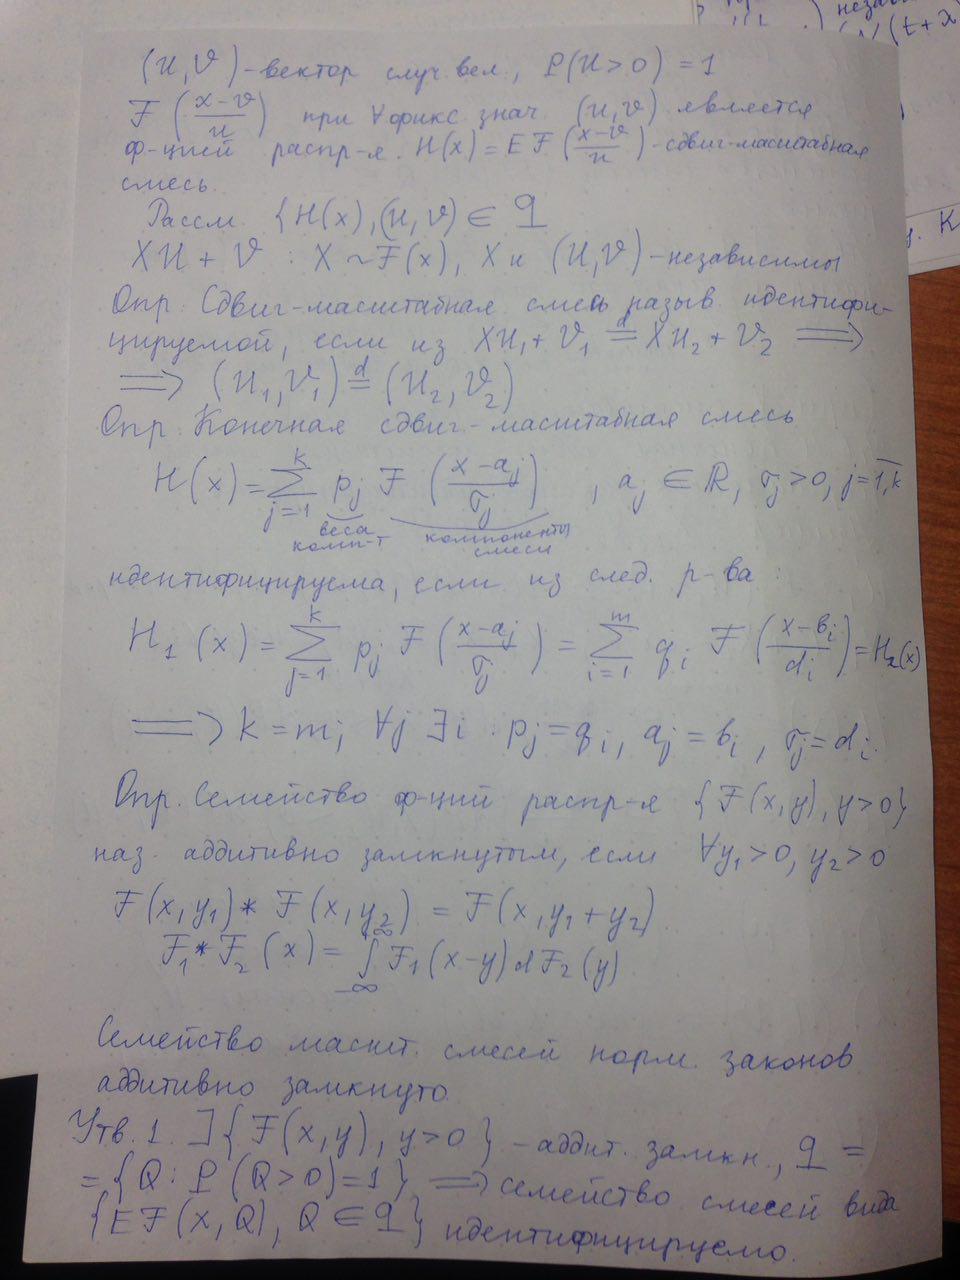 (U, V) - вектор случ. вел., P(U > 0) = 1
F((x-v)/u) при ∀ фикс знач. (U, V) является
ф-цией распр-я. H(x) = E F((x-v)/u) - сдвиг-масштабная
смесь.
Рассм. {H(x), (U, V) ∈ Q
XU + V : X ~ F(x), X и (U, V) - независимы
Опр. Сдвиг-масштабная смесь назыв идентифи-
цируемой, если из XU₁ + V₁ =ᵈ XU₂ + V₂ ⟹
⟹ (U₁, V₁) =ᵈ (U₂, V₂)
Опр. Конечная сдвиг-масштабная смесь
H(x) = ∑_{j=1}^{k} p_j F((x-a_j)/σ_j), a_j ∈ ℝ, σ_j > 0, j = 1,k
веса компоненты
комп-т смеси
идентифицируема, если из след. р-ва :
H₁(x) = ∑_{j=1}^{k} p_j F((x-a_j)/σ_j) = ∑_{i=1}^{m} q_i F((x-b_i)/d_i) = H₂(x)
⟹ k = m; ∀j ∃i : p_j = q_i, a_j = b_i, σ_j = d_i.
Опр. Семейство ф-ций распр-я {F(x, y), y > 0}
наз. аддитивно замкнутым, если ∀y₁ > 0, y₂ > 0
F(x, y₁) * F(x, y₂) = F(x, y₁ + y₂)
F₁ * F₂(x) = ∫_{-∞}^{+∞} F₁(x-y) dF₂(y)
Семейство масшт. смесей норм. законов
аддитивно замкнуто.
Утв. 1. ] {F(x, y), y > 0} - аддит. замкн., Q =
= {Q : P(Q > 0) = 1} ⟹ семейство смесей вида
{E F(x, Q), Q ∈ Q} идентифицируемо.